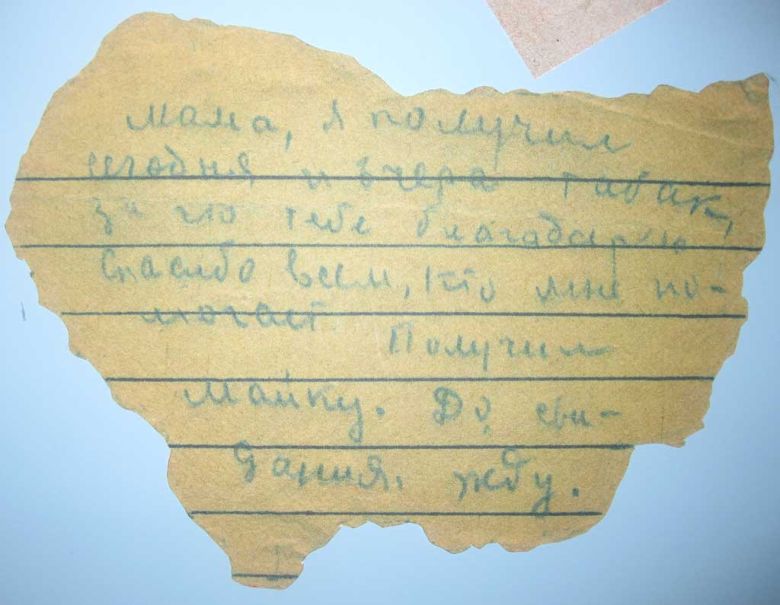 Мама, я получил
сегодня и вчера табак,
за что тебе благодарен
Спасибо всем, кто мне по-
могает. Получил
майку. До сви-
дания. жду.